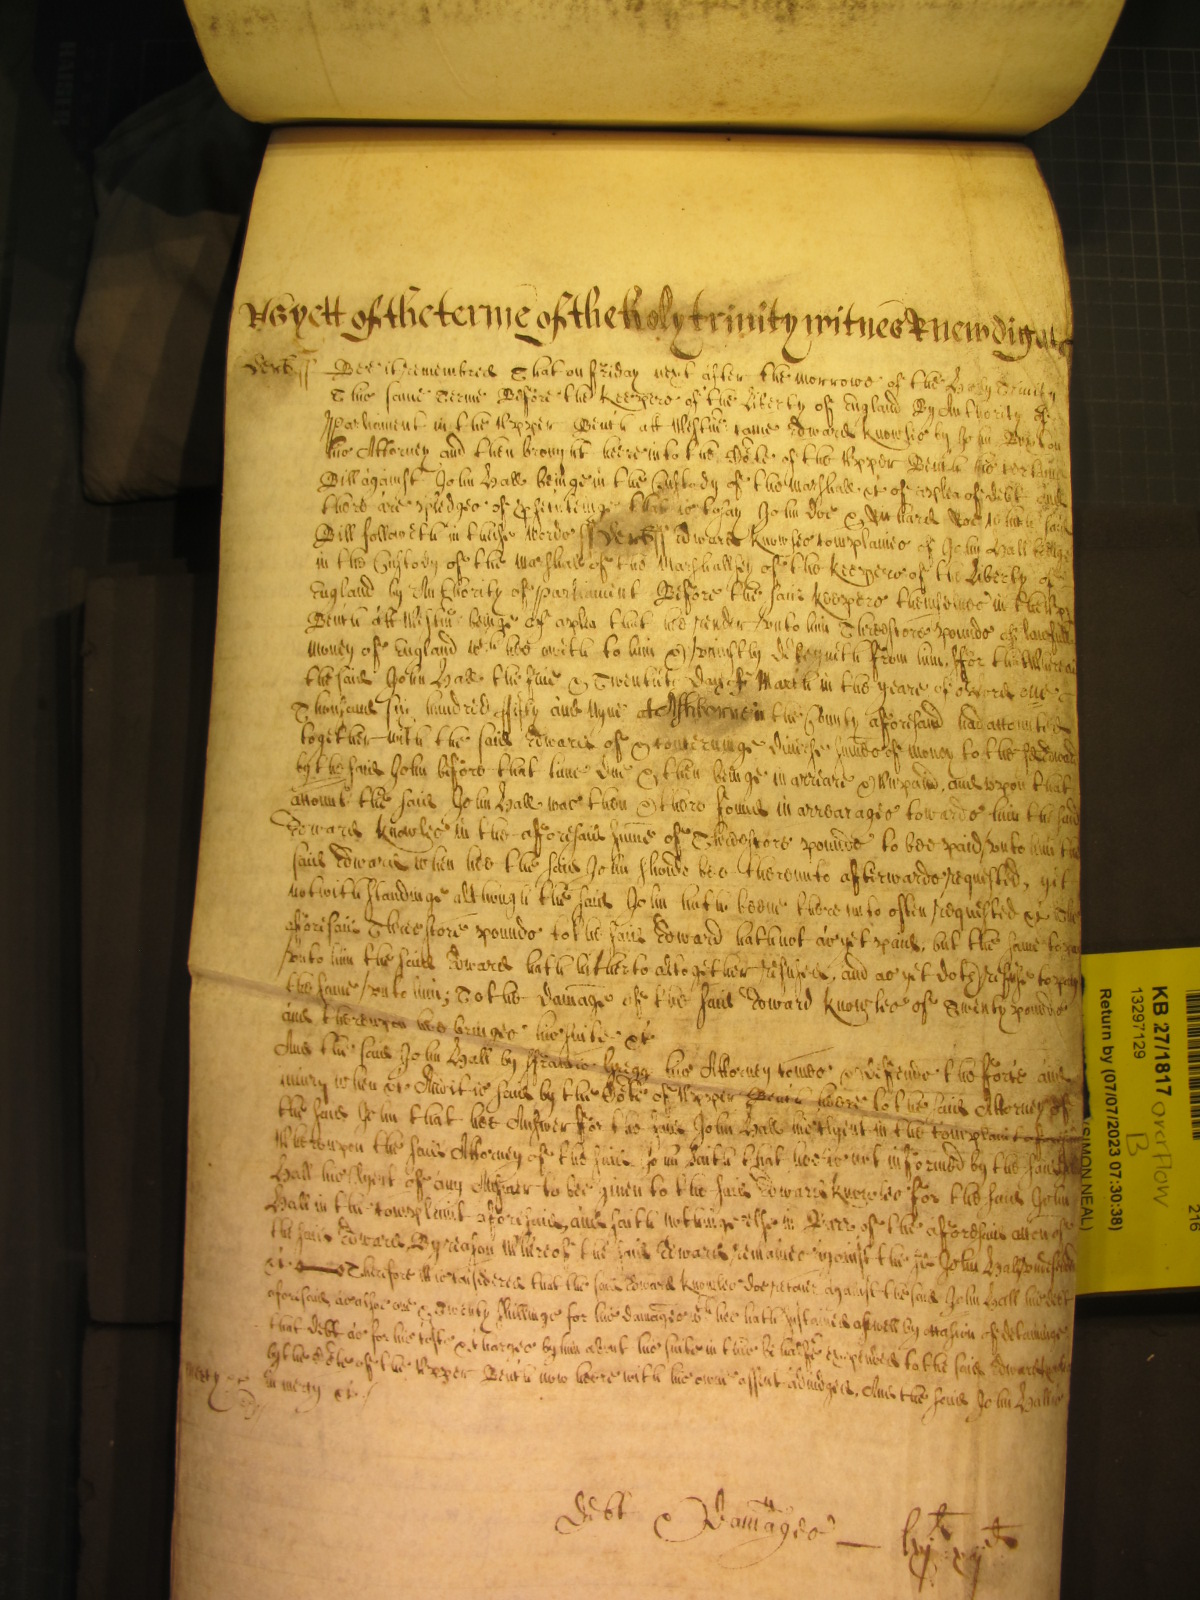 As yett of the terme of the holy trinity witnes R newdigate
Derb ss Bee it remembred That on friday next after the morrowe of the Holy Trinity
This same Terme Before the Keepers of the Liberty of England By Authority of
Parliament in the Upper Bench att Westmr came Edward Knowles by John Buxton
his Attorney and then brought heere into the Court of the Upper Bench his certaine
Bill against John Hall beinge in the Custody of the Marshall &c of a plea of debt And
there are pledges of p'secutinge that is to say John doe & Richard Roe which said
Bill followeth in theise words ss Derb ss Edward Knowles complaines of John Hall beinge
in the Custody of the Marshall of the Marshallsey of the Keepers of the Liberty of
England by Authority of Parliament Before the said Keepers themselves in the Upper
Bench att Westmr beinge of a plea that hee render unto him Threescore pounds of lawfull
money of England wch hee oweth to him & uniustly deteyneth from him, ffor that Whereas
the said John Hall the five & Twentieth day of March in the yeare of our Lord one
Thousand six hundred fifty and Nyne at Ashborne in the County aforesaid had accounted
together with the said Edward of & concerninge diverse summes of money to the sd Edward
by the said John before that time due & then beinge in arreare & unpaid, and upon that
account the said John Hall was then & there found in arrearages towards him the said
Edward Knowles in the afforesaid summe of Threescore pounds to bee paid unto him the
said Edward when hee the said John should bee thereunto afterwards requested, yet
notwithstandinge although the said John hath beene thereunto often requested &c The
aforesaid Threescore pounds to the said Edward hath not as yet paid, but the same to pay
unto him the said Edward hath hitherto altogether refused, and as yet doth refuse to pay
the same unto him; To the damage of the said Edward Knowles of Twenty pounds
and thereupon hee bringes his suite &c
And the said John Hall by ffrancis his Attorney comes & deffends the force and
iniury when &c And it is said by the Court of Upper Bench heere to the said Attorney of
the said John that hee Answer for the said John Hall his Clyent in the complaint aforesaid
Whereupon the said Attorney of the said John saith that hee is not informed by the said John
Hall his Clyent of any Answer to bee given to the said Edward Knowles for the said John
Hall in the complaint aforesaid, and saith nothinge else in Barr of the afforesaid accon of
the said Edward, By reason Whereof the said Edward remaines against the sd John Hall undefended
&c Therefore it is considered that the said Edward Knowles doe recover against the said John Hall his debt
aforesaid as alsoe & Twenty shillings for his damages wch hee hath sustained aswell by occasion of detaininge
that debt as for his costs & charges by him about his suite in this behalfe expended to the said Edward Knowles
by the Court of the Upper Bench now heere with his owne assent adiudged, And the said John Hall
mercy &c in mercy &c
Debt & Damages — lxj li
KB 27/1817 overflow
B
13297129
Return by (07/07/2023 07:30:38)
(SIMON NEAL)
216